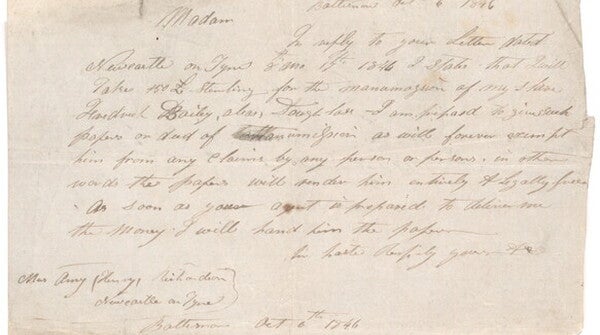 Baltimore Oct 6 1846
Madam
In reply to your Letter dated
Newcastle on Tyne 8 mo 17th 1846 I state that I will
Take 150 L Sterling for the manamosion of my slave
Fredrick Baily, alias Douglass - I am prepared to give such
papers or deed of Manumission as will forever exempt
him from any Claims by any person or persons. in other
words the papers will render him entirely & Legally free
As soon as your agent is prepared to deliver me
the money I will hand him the papers
In haste yours &c
Mrs Amy (Henry) Richardson
Newcastle on Tyne
Baltimore Oct 6th 1846